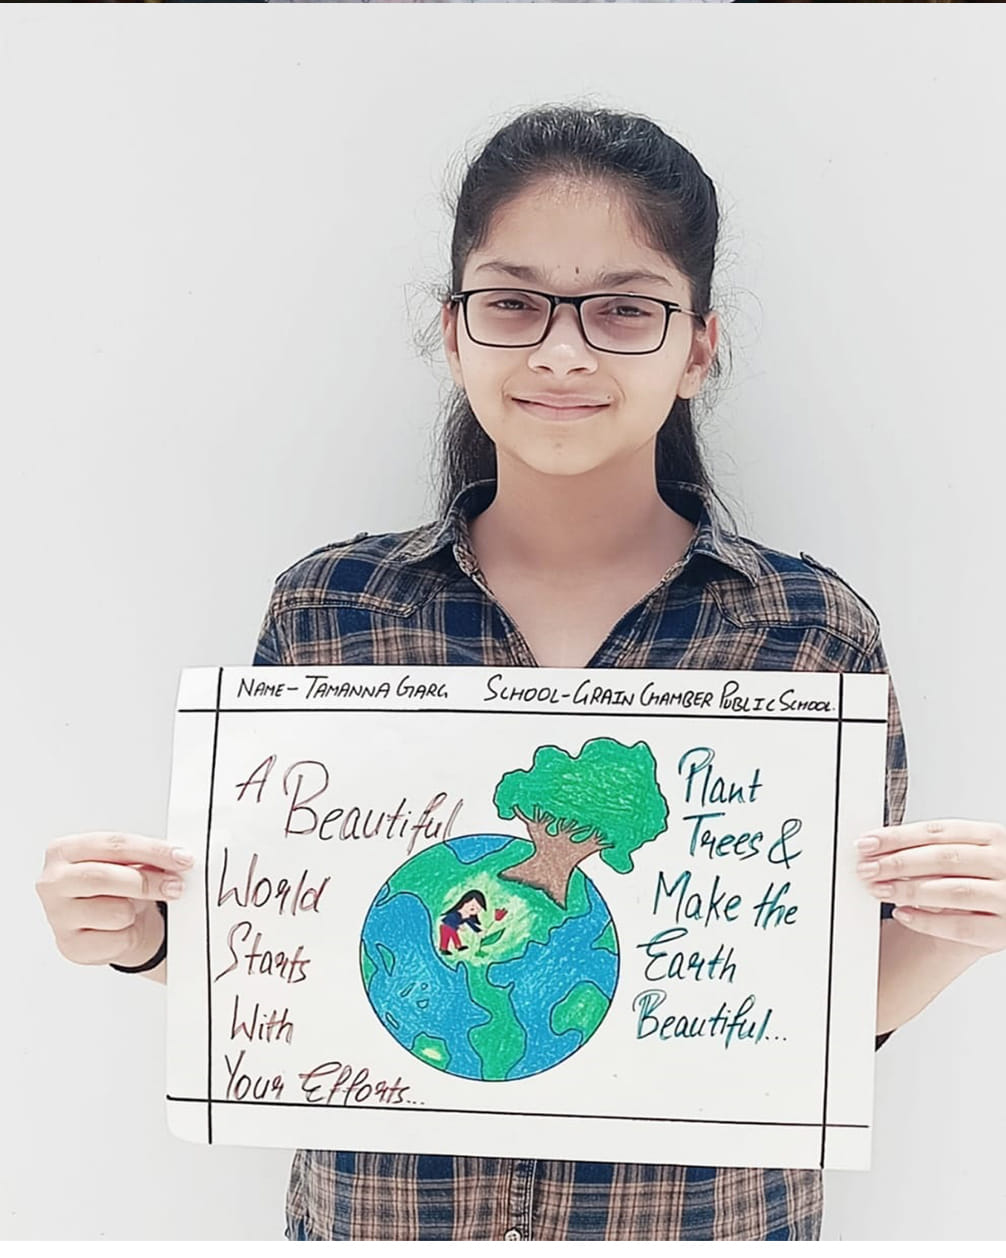 NAME- TAMANNA GARG SCHOOL-GRAIN CHAMBER PUBLIC SCHOOL.
A
Beautiful
World
Starts
With
Your Efforts...
Plant
Trees &
Make the
Earth
Beautiful...